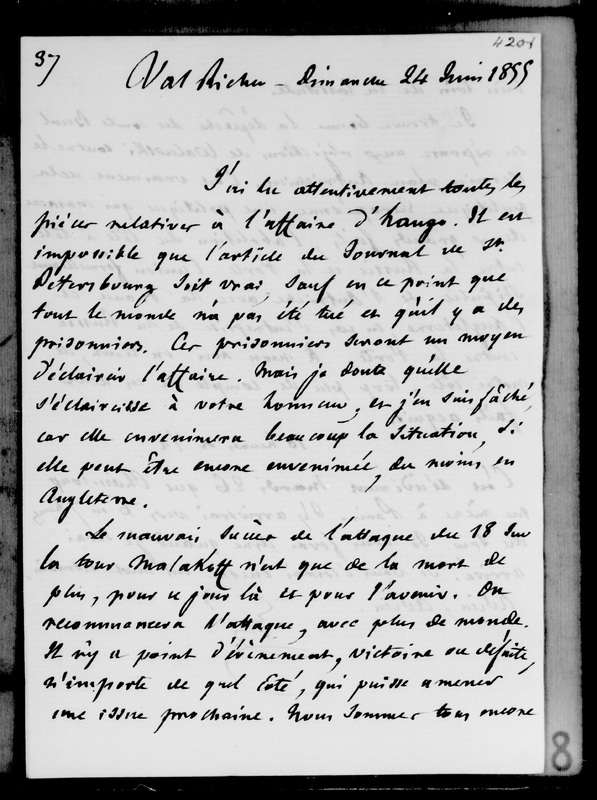 37
420
Val Richer – Dimanche 24 Juin 1855
J'ai lu attentivement toutes les
pièces relatives à l'affaire d'hango. Il est
impossible que l'article du Journal de St
Pétersbourg soit vrai, sauf en ce point que
tout le monde n'a pas été tué et qu'il y a des
prisonniers. Ces prisonniers seront un moyen
d'éclaircir l'affaire. Mais je doute qu'elle
s'éclaircisse à votre honneur, et j'en suis fâché,
car elle envenimera beaucoup la situation, si
elle peut être encore envenimée, du moins en
Angleterre.
Le mauvais succès de l'attaque du 18 sur
la tour Malakoff n'est que de la mort de
plus, pour ce jour là et pour l'avenir. On
recommencera l'attaque, avec plus de monde.
Il n'y a point d'évènement, victoire ou défaite,
n'importe de quel côté, qui puisse amener
une issue prochaine. Nous sommes tous encore
8